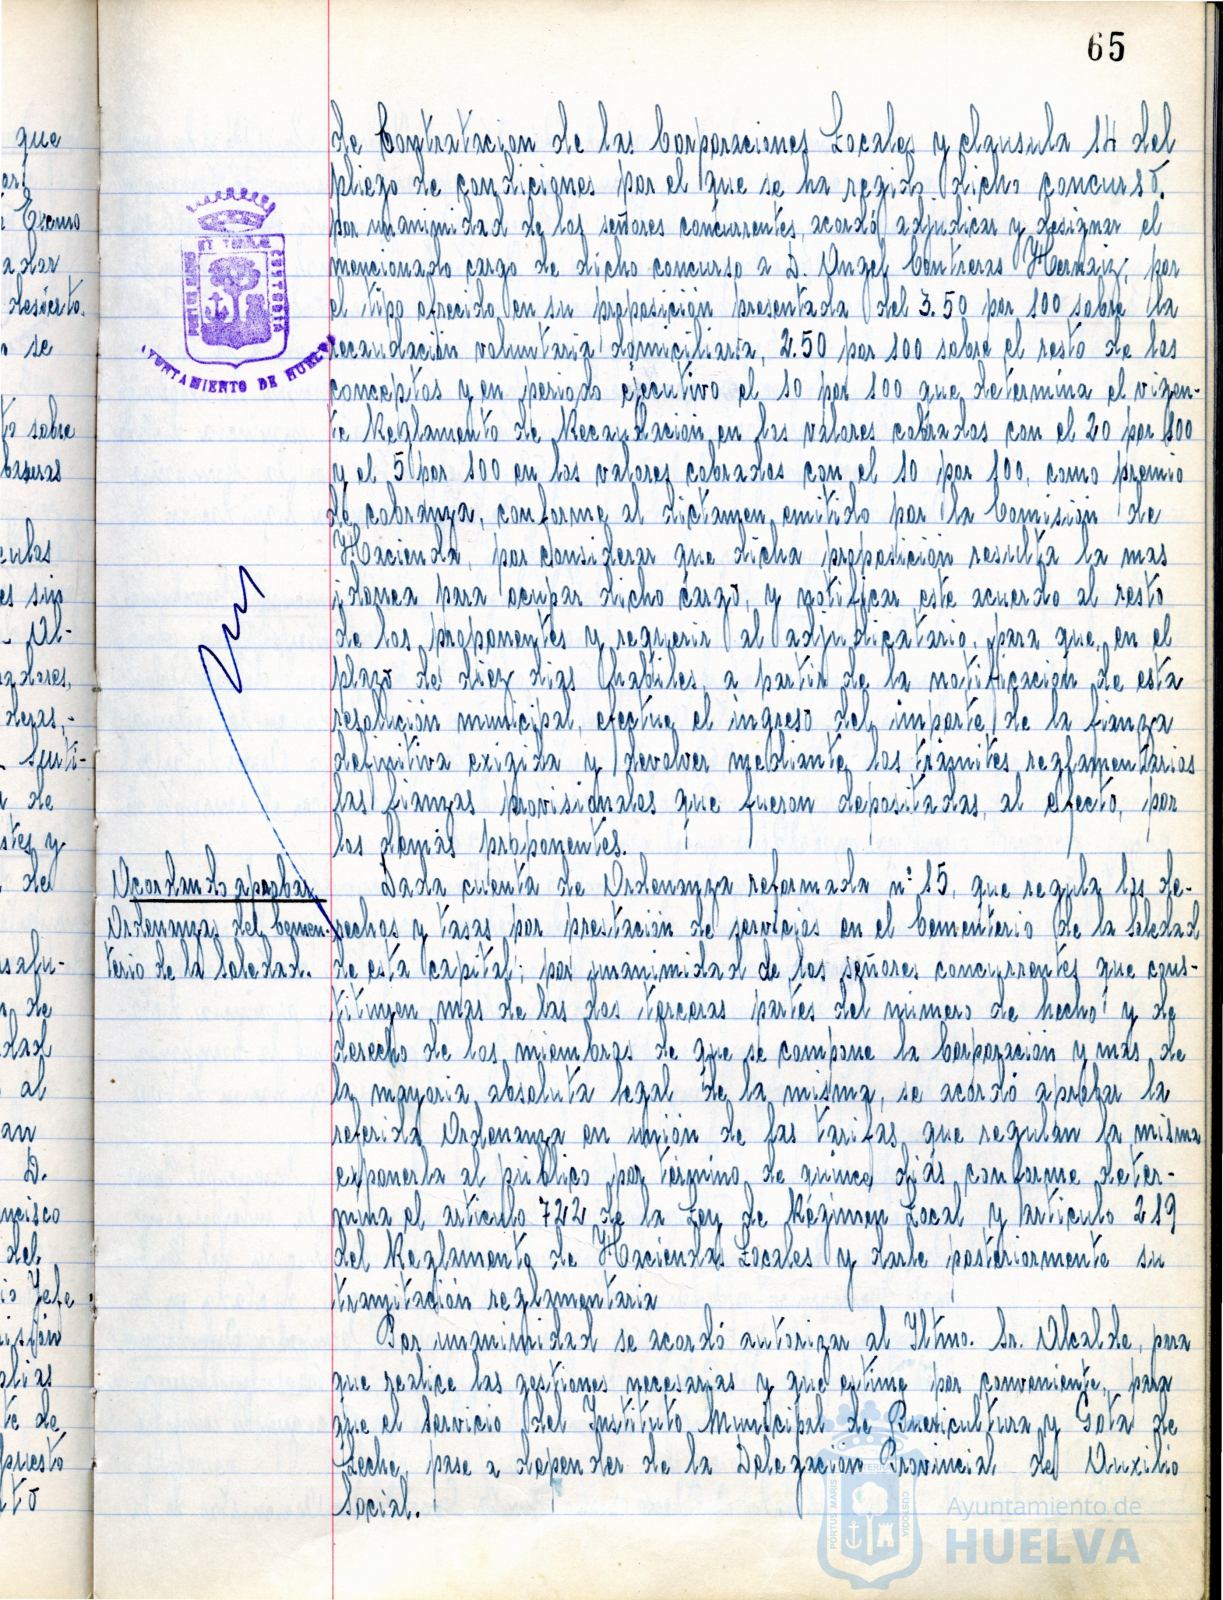 65
de Contratacion de las Corporaciones Locales y clausula 14 del
pliego de condiciones por el que se ha regido dicho concurso.
por unanimidad de los señores concurrentes, acordó adjudicar y designar el
mencionado cargo de dicho concurso a D. Angel Contreras Hernaiz, por
el tipo ofrecido en su proposición presentada del 3.50 por 100 sobre la
recaudación voluntaria domiciliaria, 2.50 por 100 sobre el resto de los
conceptos y en periodo ejecutivo el 10 por 100 que determina el vigen-
te Reglamento de Recaudación en los valores cobrados con el 20 por 100
y el 5 por 100 en los valores cobrados con el 10 por 100, como premio
de cobranza, conforme al dictamen emitido por la Comisión de
Hacienda, por considerar que dicha proposición resulta la mas
idonea para ocupar dicho cargo, y notificar este acuerdo al resto
de los proponentes y requerir al adjudicatario, para que, en el
plazo de diez dias habiles, a partir de la notificación de esta
resolución municipal, efectue el ingreso del importe de la fianza
definitiva exigida y devolver mediante los trámites reglamentarios
las fianzas provisionales que fueron depositadas, al efecto, por
los demás proponentes.
Acordando aprobar
Ordenanzas del Cemen-
terio de la Soledad.
Dada cuenta de Ordenanza reformada nº 15, que regula los de-
rechos y tasas por prestación de servicios en el Cementerio de la Soledad
de esta capital; por unanimidad de los señores concurrentes que cons-
tituyen mas de las dos terceras partes del número de hecho y de
derecho de los miembros de que se compone la Corporación y mas de
la mayoria absoluta legal de la misma, se acordó aprobar la
referida Ordenanza en unión de las tarifas que regulan la misma
exponerla al público por término de quince dias conforme deter-
mina el articulo 722 de la Ley de Régimen Local y articulo 219
del Reglamento de Haciendas Locales y darle posteriormente su
tramitación reglamentaria
Por unanimidad se acordó autorizar al Iltmo. Sr. Alcalde, para
que realice las gestiones necesarias y que estime por conveniente, para
que el Servicio del Instituto Municipal de Puericultura y Gota de
Leche, pase a depender de la Delegación Provincial de Auxilio
Social.
AYUNTAMIENTO DE HUELVA
CUSTODIA
que
Excmo
desierto.
se
sobre
de
y
de
de
al
D.
del
Jefe
de
Ayuntamiento de
HUELVA
PORTUS MARIS
CUSTODIA